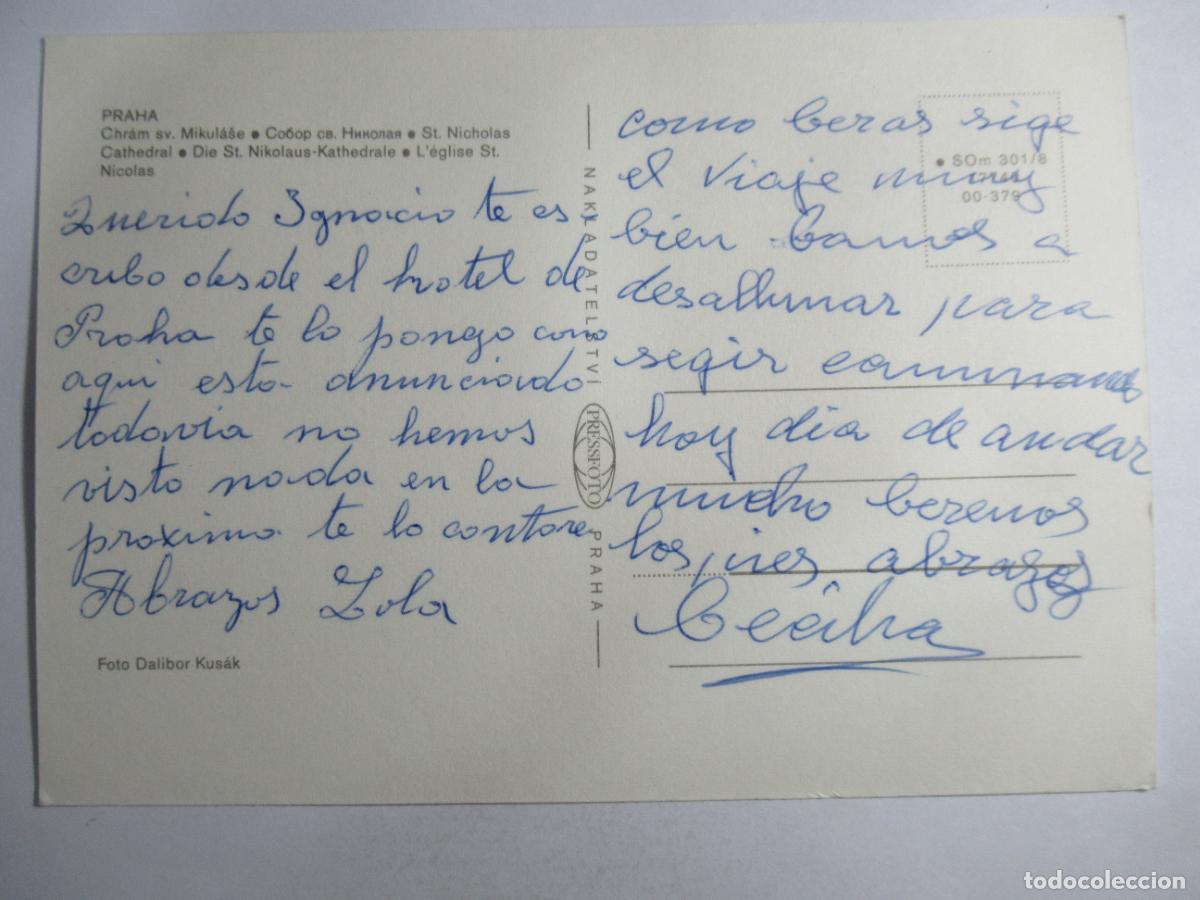 PRAHA
Chrám sv. Mikuláše ● Собор св. Николая ● St. Nicholas
Cathedral ● Die St. Nikolaus-Kathedrale ● L'église St.
Nicolas
Querido Ignacio te es
cribo desde el hotel de
Praha te lo pongo como
aqui esta anunciado
todavia no hemos
visto nada en la
proxima te lo contare
Abrazos Lola
Foto Dalibor Kusák
NAKLADATELSTVÍ PRESSFOTO PRAHA
como beras sige
el viaje muy
bien bamos a
desallunar para
segir caminando
hoy dia de andar
mucho beremos
abrazos
Cecilia
● SOm 301/8
00-379
todocoleccion